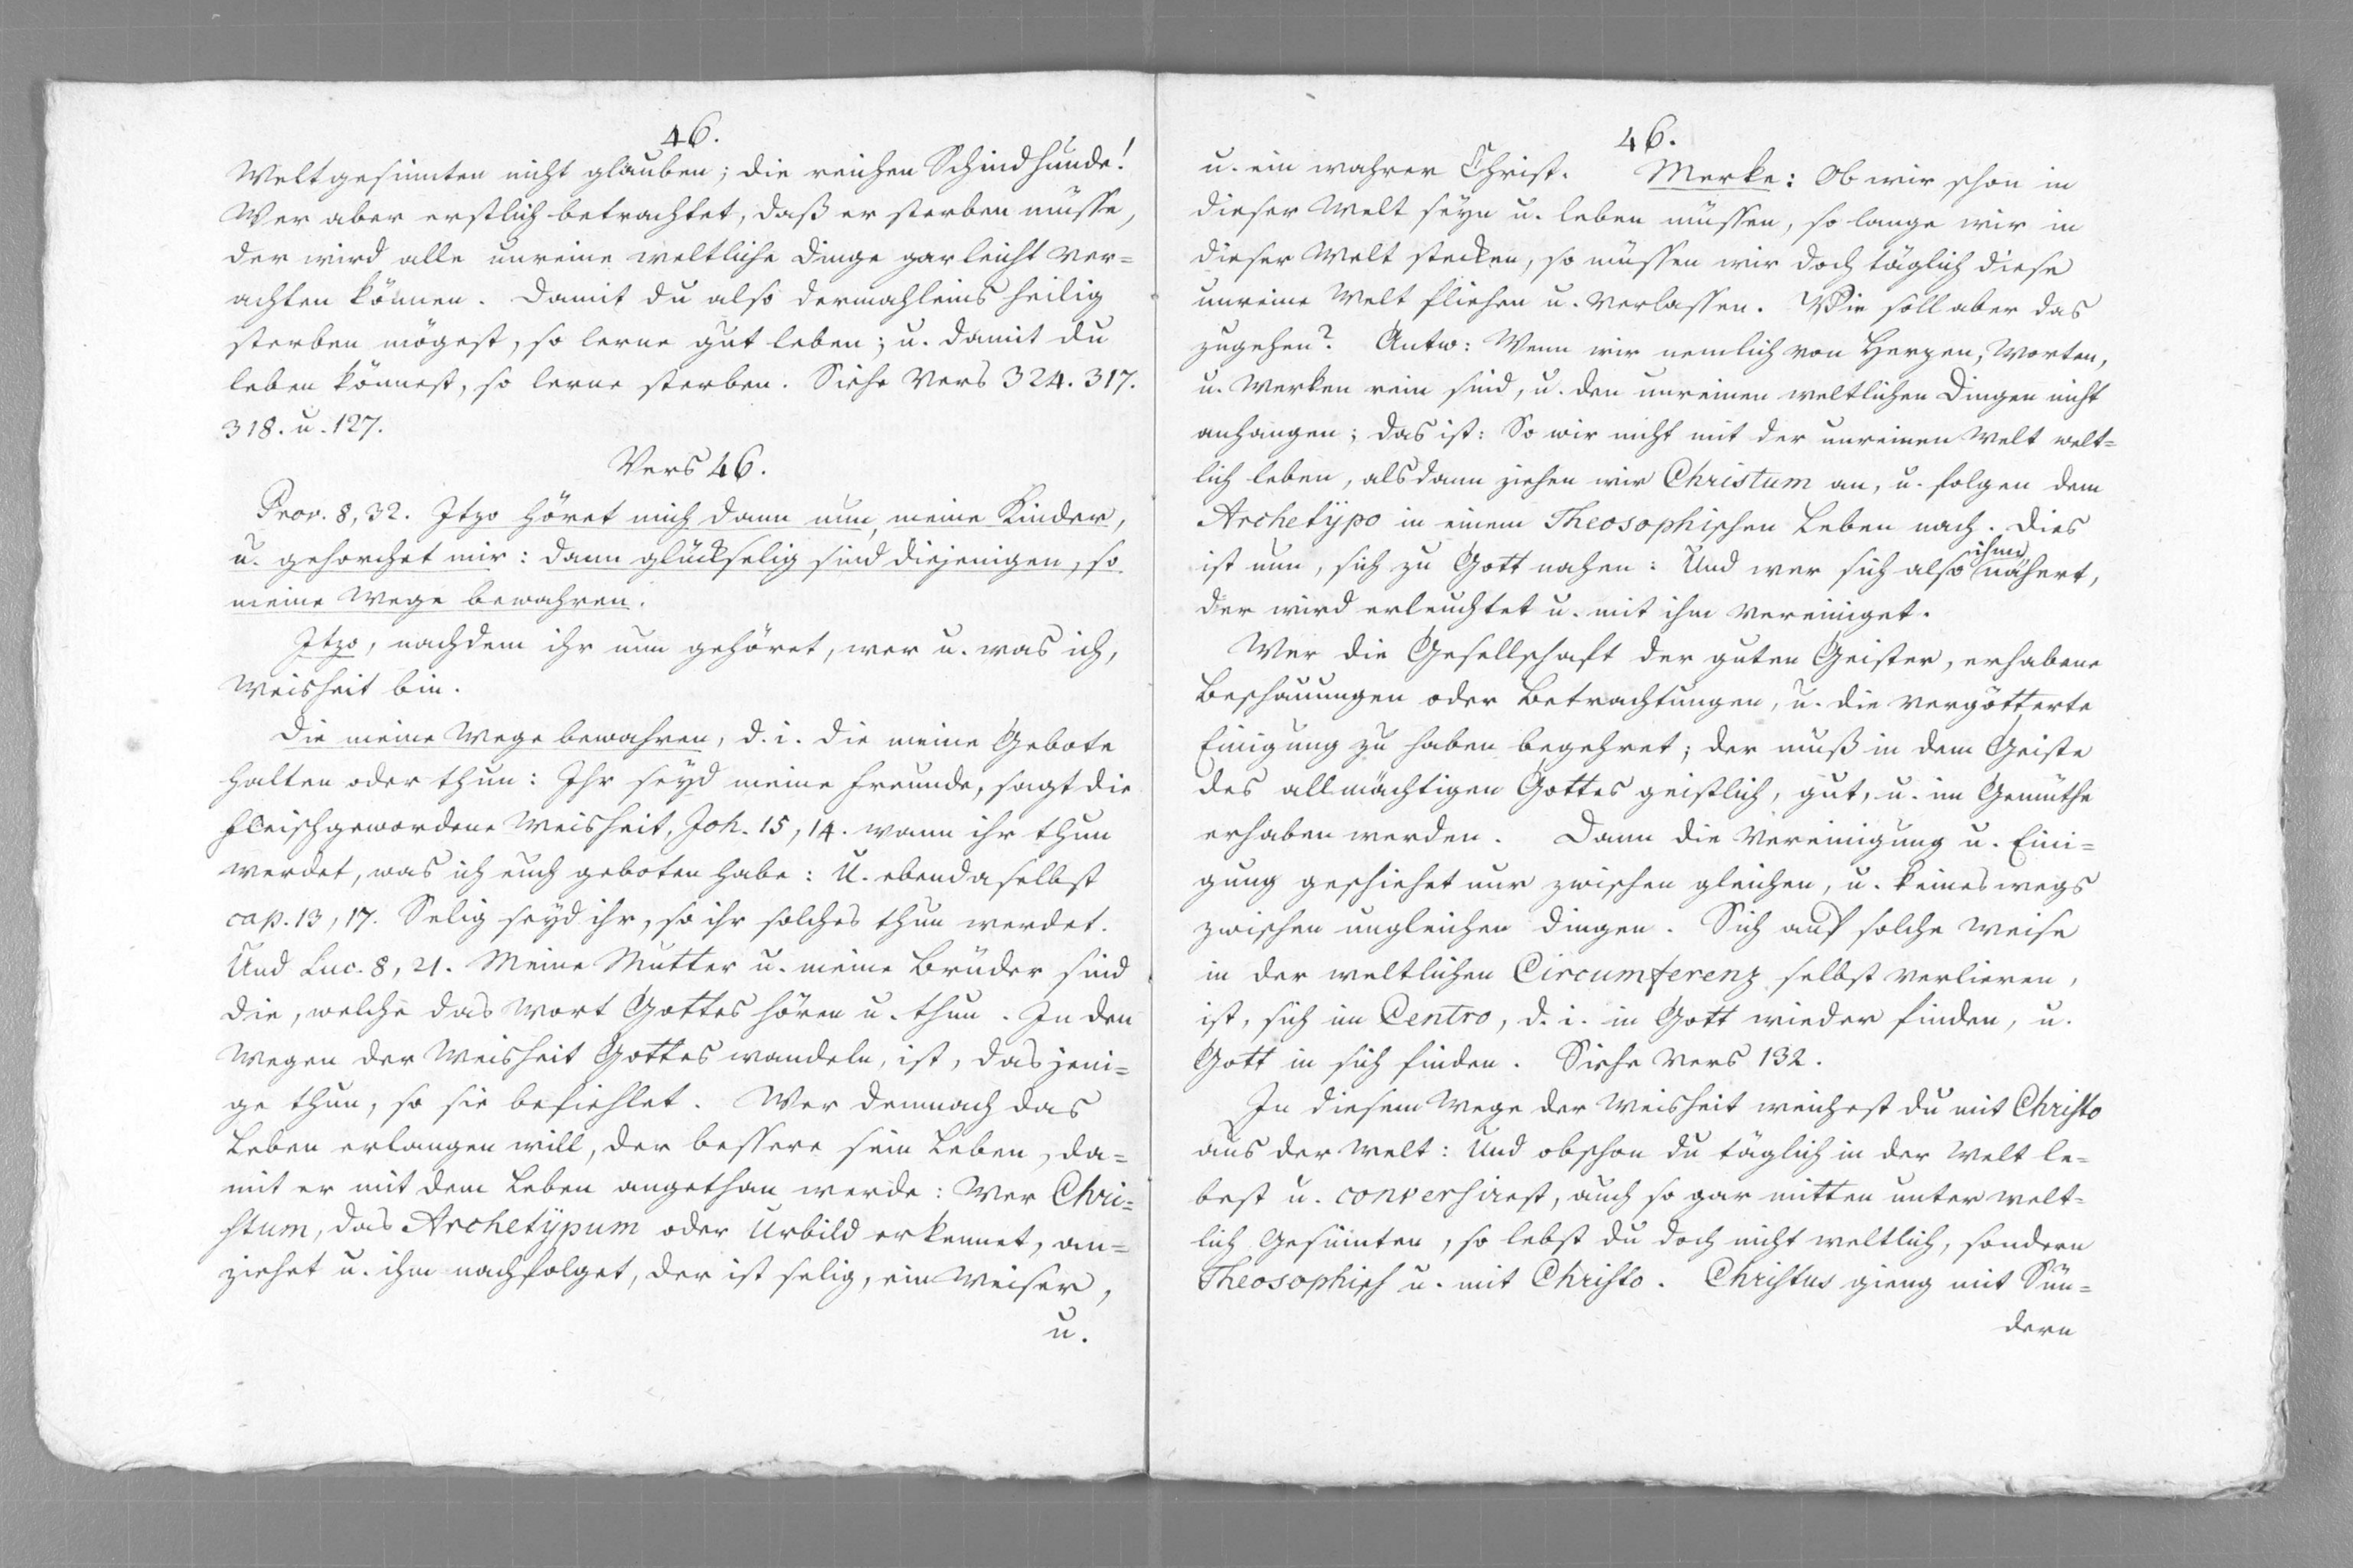 46.
Weltgesinnten nicht glauben; die reichen Schindhunde!
Wer aber erstlich betrachtet, daß er sterben müsse,
der wird alle unreine weltliche Dinge gar leicht ver=
achten können. Damit du also dermahleins heilig
sterben mögest, so lerne gut leben; u. damit du
leben könnest, so lerne sterben. Siehe Vers 324. 317.
318. u. 127.
Vers 46.
Prov. 8, 32. Itzo höret mich dann nun, meine Kinder,
u. gehorchet mir: dann glückselig sind diejenigen, so
meine Wege bewahren.
Itzo, nachdem ihr nun gehöret, wer u. was ich,
Weisheit bin.
Die meine Wege bewahren, d. i. die meine Gebote
halten oder thun: Ihr seyd meine Freunde, sagt die
fleischgewordene Weisheit, Joh. 15, 14. wann ihr thun
werdet, was ich euch geboten habe: U. ebendaselbst
cap. 13, 17. Selig seyd ihr, so ihr solches thun werdet.
Und Luc. 8, 21. Meine Mutter u. meine Brüder sind
die, welche das Wort Gottes hören u. thun. In den
Wegen der Weisheit Gottes wandeln, ist, dasjeni=
ge thun, so sie befiehlet. Wer demnach das
Leben erlangen will, der bessere sein Leben, da=
mit er mit dem Leben angethan werde: Wer Chri=
stum, das Archetÿpum oder Urbild erkennet, an=
ziehet u. ihm nachfolget, der ist selig, ein Weiser,
u.
46.
u. ein wahrer Christ. Merke: Ob wir schon in
dieser Welt seyn u. leben müssen, so lange wir in
dieser Welt stecken, so müssen wir doch täglich diese
unreine Welt fliehen u. verlassen. Wie soll aber das
zugehen? Antw: Wenn wir nemlich von Herzen, Worten,
u. Werken rein sind, u. den unreinen weltlichen Dingen nicht
anhangen; das ist: So wir nicht mit der unreinen Welt welt=
lich leben, alsdann ziehen wir Christum an, u. folgen dem
Archetÿpo in einem Theosophischen Leben nach. Dies
ist nun, sich zu Gott nahen: Und wer sich also ihme nähert,
der wird erleuchtet u. mit ihm vereiniget.
Wer die Gesellschaft der guten Geister, erhabene
Beschauungen oder Betrachtungen, u. die vergötterte
Einigung zu haben begehret; der muß in dem Geiste
des allmächtigen Gottes geistlich, gut, u. im Gemüthe
erhaben werden. Dann die Vereinigung u. Eini=
gung geschiehet nur zwischen gleichen, u. keineswegs
zwischen ungleichen Dingen. Sich auf solche Weise
in der weltlichen Circumferenz selbst verlieren,
ist, sich im Centro, d. i. in Gott wieder finden, u.
Gott in sich finden. Siehe Vers 132.
In diesem Wege der Weisheit weichest du mit Christo
aus der Welt: Und obschon du täglich in der Welt le=
best u. conversirest, auch so gar mitten unter welt=
lich Gesinnten, so lebst du doch nicht weltlich, sondern
Theosophisch u. mit Christo. Christus gieng mit Sün=
dern